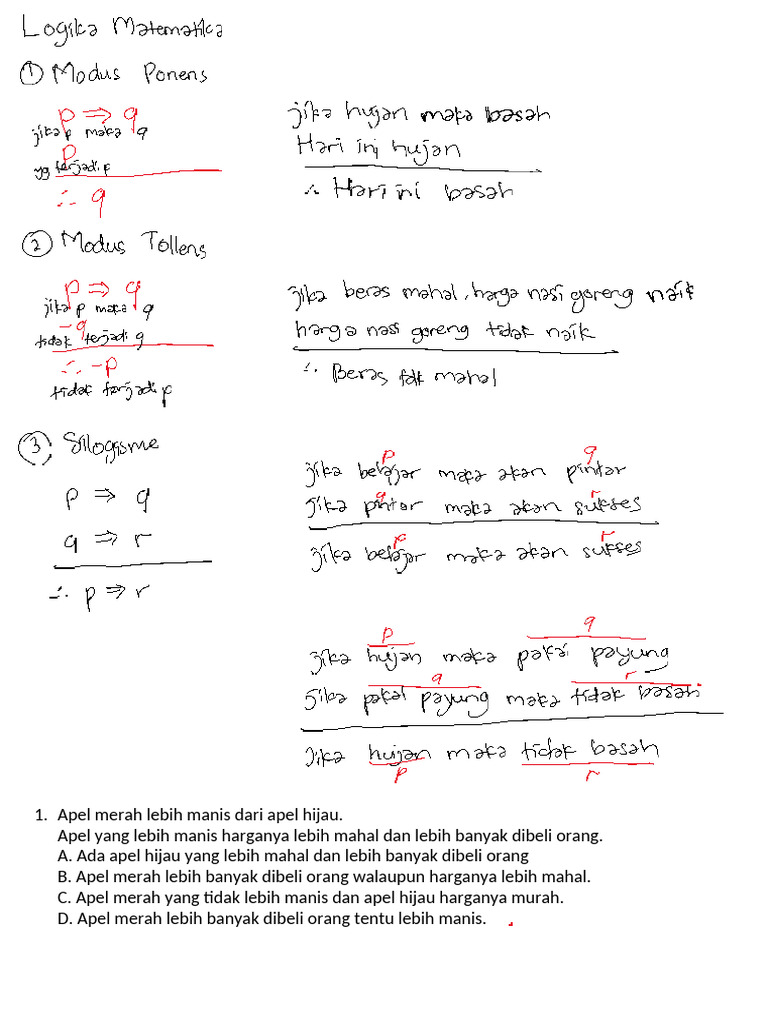 Logika Matematika
① Modus Ponens
p ⇒ q
jika p maka q
p
yg terjadi p
∴ q
jika hujan maka basah
Hari ini hujan
∴ Hari ini basah
② Modus Tollens
p ⇒ q
jika p maka q
-q
tidak terjadi q
∴ -p
tidak terjadi p
jika beras mahal, harga nasi goreng naik
harga nasi goreng tidak naik
∴ Beras tdk mahal
③ Silogisme
p ⇒ q
q ⇒ r
∴ p ⇒ r
p q
jika belajar maka akan pintar
q r
jika pintar maka akan sukses
p r
jika belajar maka akan sukses
p q
jika hujan maka pakai payung
q r
jika pakai payung maka tidak basah
Jika hujan maka tidak basah
p r
1. Apel merah lebih manis dari apel hijau.
Apel yang lebih manis harganya lebih mahal dan lebih banyak dibeli orang.
A. Ada apel hijau yang lebih mahal dan lebih banyak dibeli orang
B. Apel merah lebih banyak dibeli orang walaupun harganya lebih mahal.
C. Apel merah yang tidak lebih manis dan apel hijau harganya murah.
D. Apel merah lebih banyak dibeli orang tentu lebih manis.